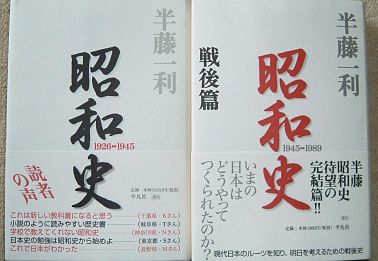 半藤一利
昭和史
1926-1945
定価：本体1600円(税別)
平凡社
読者
の声
これは新しい教科書になると思う（千葉県・Kさん）
小説のように読みやすい歴史書（岐阜県・Tさん）
学校で教えてくれない昭和史（神奈川県・Nさん）
日本史の勉強は昭和史から始めよ（東京都・Sさん）
これで日本がわかった（長野県・Mさん）
半藤一利
昭和史
戦後篇
1945-1989
半藤
昭和史
待望の
完結篇!!
定価：本体1800円(税別)
平凡社
いまの
日本は
どうやって
つくられたのか？
現代日本のルーツを知り、明日を考えるための戦後史